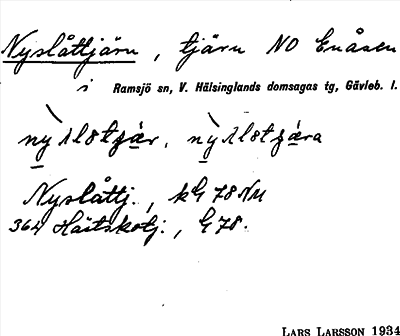 Nyslåttjärn, tjärn NO Enåsen
i Ramsjö sn, V. Hälsinglands domsagas tg, Gävleb. l.
Nyslåttj., kG 78 NM
364 Håitskotj., G 78.
LARS LARSSON 1934